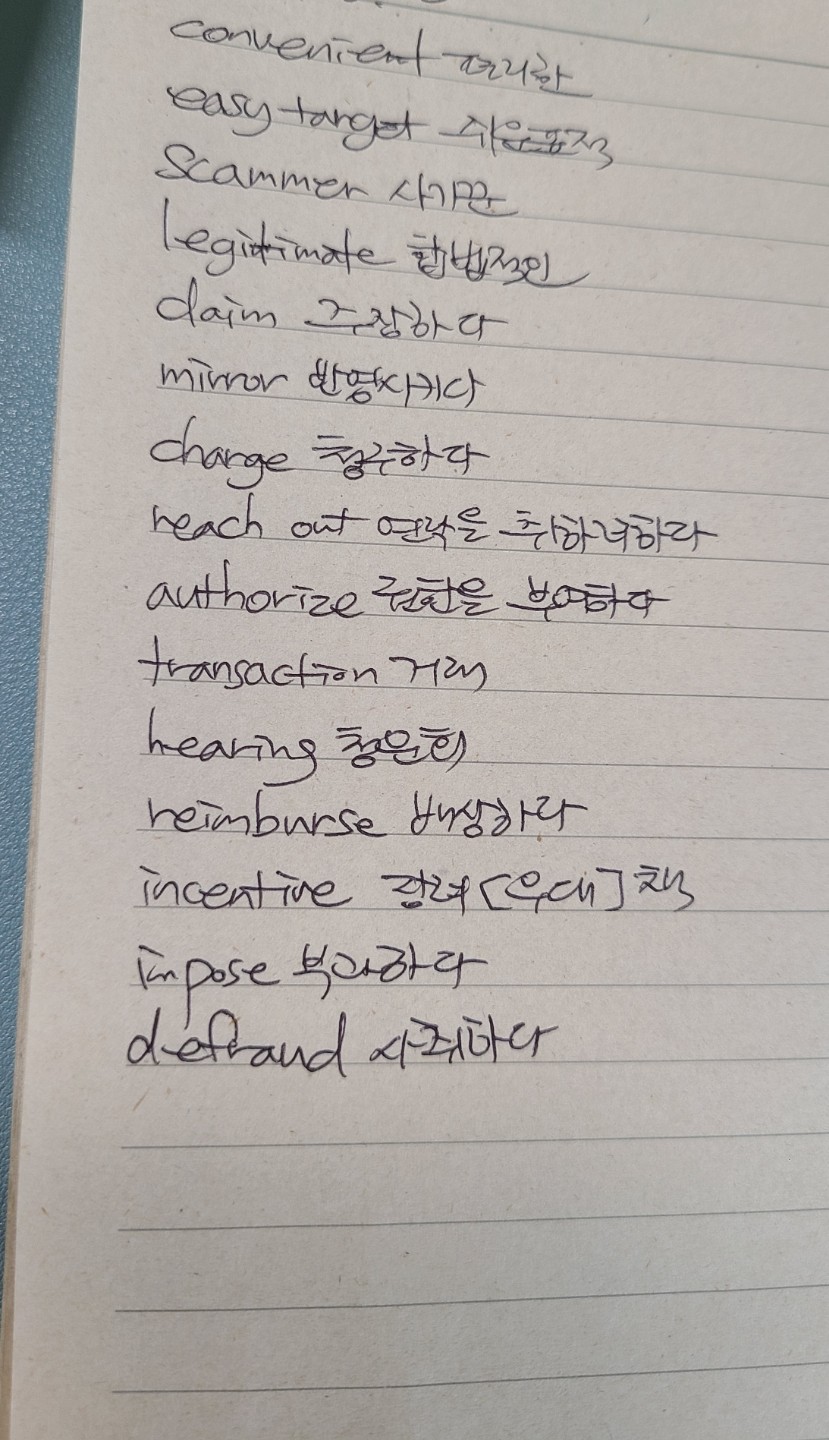 convenient 편리한
easy target 쉬운표적
Scammer 사기꾼
legitimate 합법적인
claim 주장하다
mirror 반영시키다
charge 청구하다
reach out 연락을 취하려하다
authorize 권한을 부여하다
transaction 거래
hearing 청문회
reimburse 배상하다
incentive 장려[우대]책
impose 부과하다
defraud 사취하다